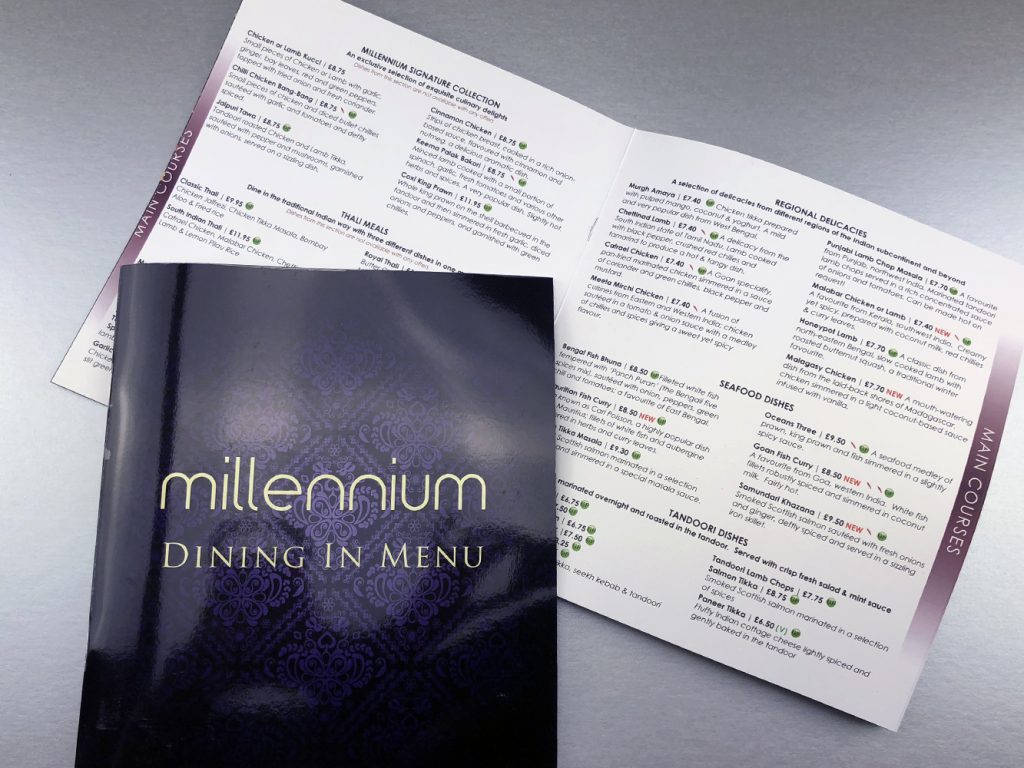 MAIN COURSES
Chicken or Lamb Kucci | £8.75
Small pieces of Chicken or Lamb with garlic,
ginger, bay leaves, red and green peppers,
topped with fried onion and fresh coriander.
Chilli Chicken Bang-Bang | £8.75
Small pieces of chicken and diced bullet chillies
sautéed with garlic and tomatoes and deftly
Jaipuri Tawa | £8.75
Tandoori roasted Chicken and Lamb Tikka,
sautéed with pepper and mushrooms, garnished
with onions, served on a sizzling dish.
MILLENNIUM SIGNATURE COLLECTION
An exclusive selection of exquisite culinary delights
Dishes from this section are not available with any offers
Cinnamon Chicken | £8.75
Strips of chicken breast, cooked in a rich onion-
based sauce, flavoured with cinnamon and
nutmeg, a delicious aromatic dish.
Keema Palak Bakari | £8.75
Minced lamb cooked with a small portion of
spinach, garlic, fresh tomatoes and various other
herbs and spices. A very popular dish. Slightly hot
Coxi King Prawn | £11.95
Whole king prawn on the shell barbecued in the
tandoor and then simmered in fresh garlic, diced
onions and peppers, and garnished with green
chillies.
THALI MEALS
Dine in the traditional Indian way with three different dishes in one m
Dishes from this section are not available with any offers
Classic Thali | £9.95
Chicken Jalfrezi, Chicken Tikka Masala, Bombay
Aloo & Fried rice
South Indian Thali | £11.95
Cafrael Chicken, Malabar Chicken, Che
Lamb & Lemon Pilay Rice
Royal Thali | £
Butter
Garlic
Chicke
still green
REGIONAL DELICACIES
A selection of delicacies from different regions of the Indian subcontinent and beyond
Murgh Amaya | £7.40 Chicken tikka prepared
with pulped mango, coconut & yoghurt. A mild
and very popular dish from West Bengal.
Chettinad Lamb | £7.40 A delicacy from the
South Indian state of Tamil Nadu. Lamb cooked
with black pepper, crushed red chillies and
tamarind to produce a hot & tangy dish.
Cafrael Chicken | £7.40 A Goan speciality,
pan-fried marinated chicken simmered in a sauce
of coriander and green chillies, black pepper and
mustard
Meela Mirchi Chicken | £7.40 A fusion of
cuisines from Eastern and Western India; chicken
sautéed in a tomato & onion sauce with a medley
of chillies and spices giving a sweet yet spicy
flavour.
Punjabi Lamb Chop Masala | £7.70 A favourite
from Punjab, northwest India. Marinated tandoori
lamb chops served in a rich concentrated sauce
of onions and tomatoes. Can be made hot on
request!
Malabar Chicken or Lamb | £7.40 NEW
A favourite from Kerala, southwest India. Creamy
yet spicy, prepared with coconut milk, red chillies
& curry leaves.
Honeypot Lamb | £7.70 A classic dish from
north-eastern Bengal, slow cooked lamb with
roasted butternut squash, a traditional winter
favourite.
Malagasy Chicken | £7.70 NEW A mouth-watering
dish from the laid-back shores of Madagascar,
chicken simmered in a light coconut-based sauce
infused with vanilla.
SEAFOOD DISHES
Bengal Fish Bhuna | £8.50 Filleted white fish
tempered with 'Panch Puran' (The Bengali five
spices mix), sautéed with onion, peppers, green
chilli and tomatoes; a favourite of East Bengal.
uritian Fish Curry | £8.50 NEW
known as Cari Poisson, a highly popular dish
Mauritius, fillets of white fish and aubergine
ered in herbs and curry leaves.
Tikka Masala | £9.30
Scottish salmon marinated in a selection
and simmered in a special masala sauce.
Oceans Three | £9.50 A seafood medley of
prawn, king prawn and fish simmered in a slightly
spicy sauce.
Goan Fish Curry | £8.50 NEW
A favourite from Goa, western India. White fish
fillets robustly spiced and simmered in coconut
milk. Fairly hot.
Samundari Khazana | £9.50 NEW
Smoked Scottish salmon sautéed with fresh onions
and ginger, deftly spiced and served in a sizzling
iron skillet.
TANDOORI DISHES
marinated overnight and roasted in the tandoor. Served with crisp fresh salad & mint sauce
£6.75
£6.75
£7.50
.25
kka, seekh kebab & tandoori
Tandoori Lamb Chops | £7.75
Salmon Tikka | £8.75
Smoked Scottish salmon marinated in a selection
of spices
Paneer Tikka | £6.50 (V)
Fluffy Indian cottage cheese lightly spiced and
gently baked in the tandoor
MAIN COURSES
millennium
DINING IN MENU